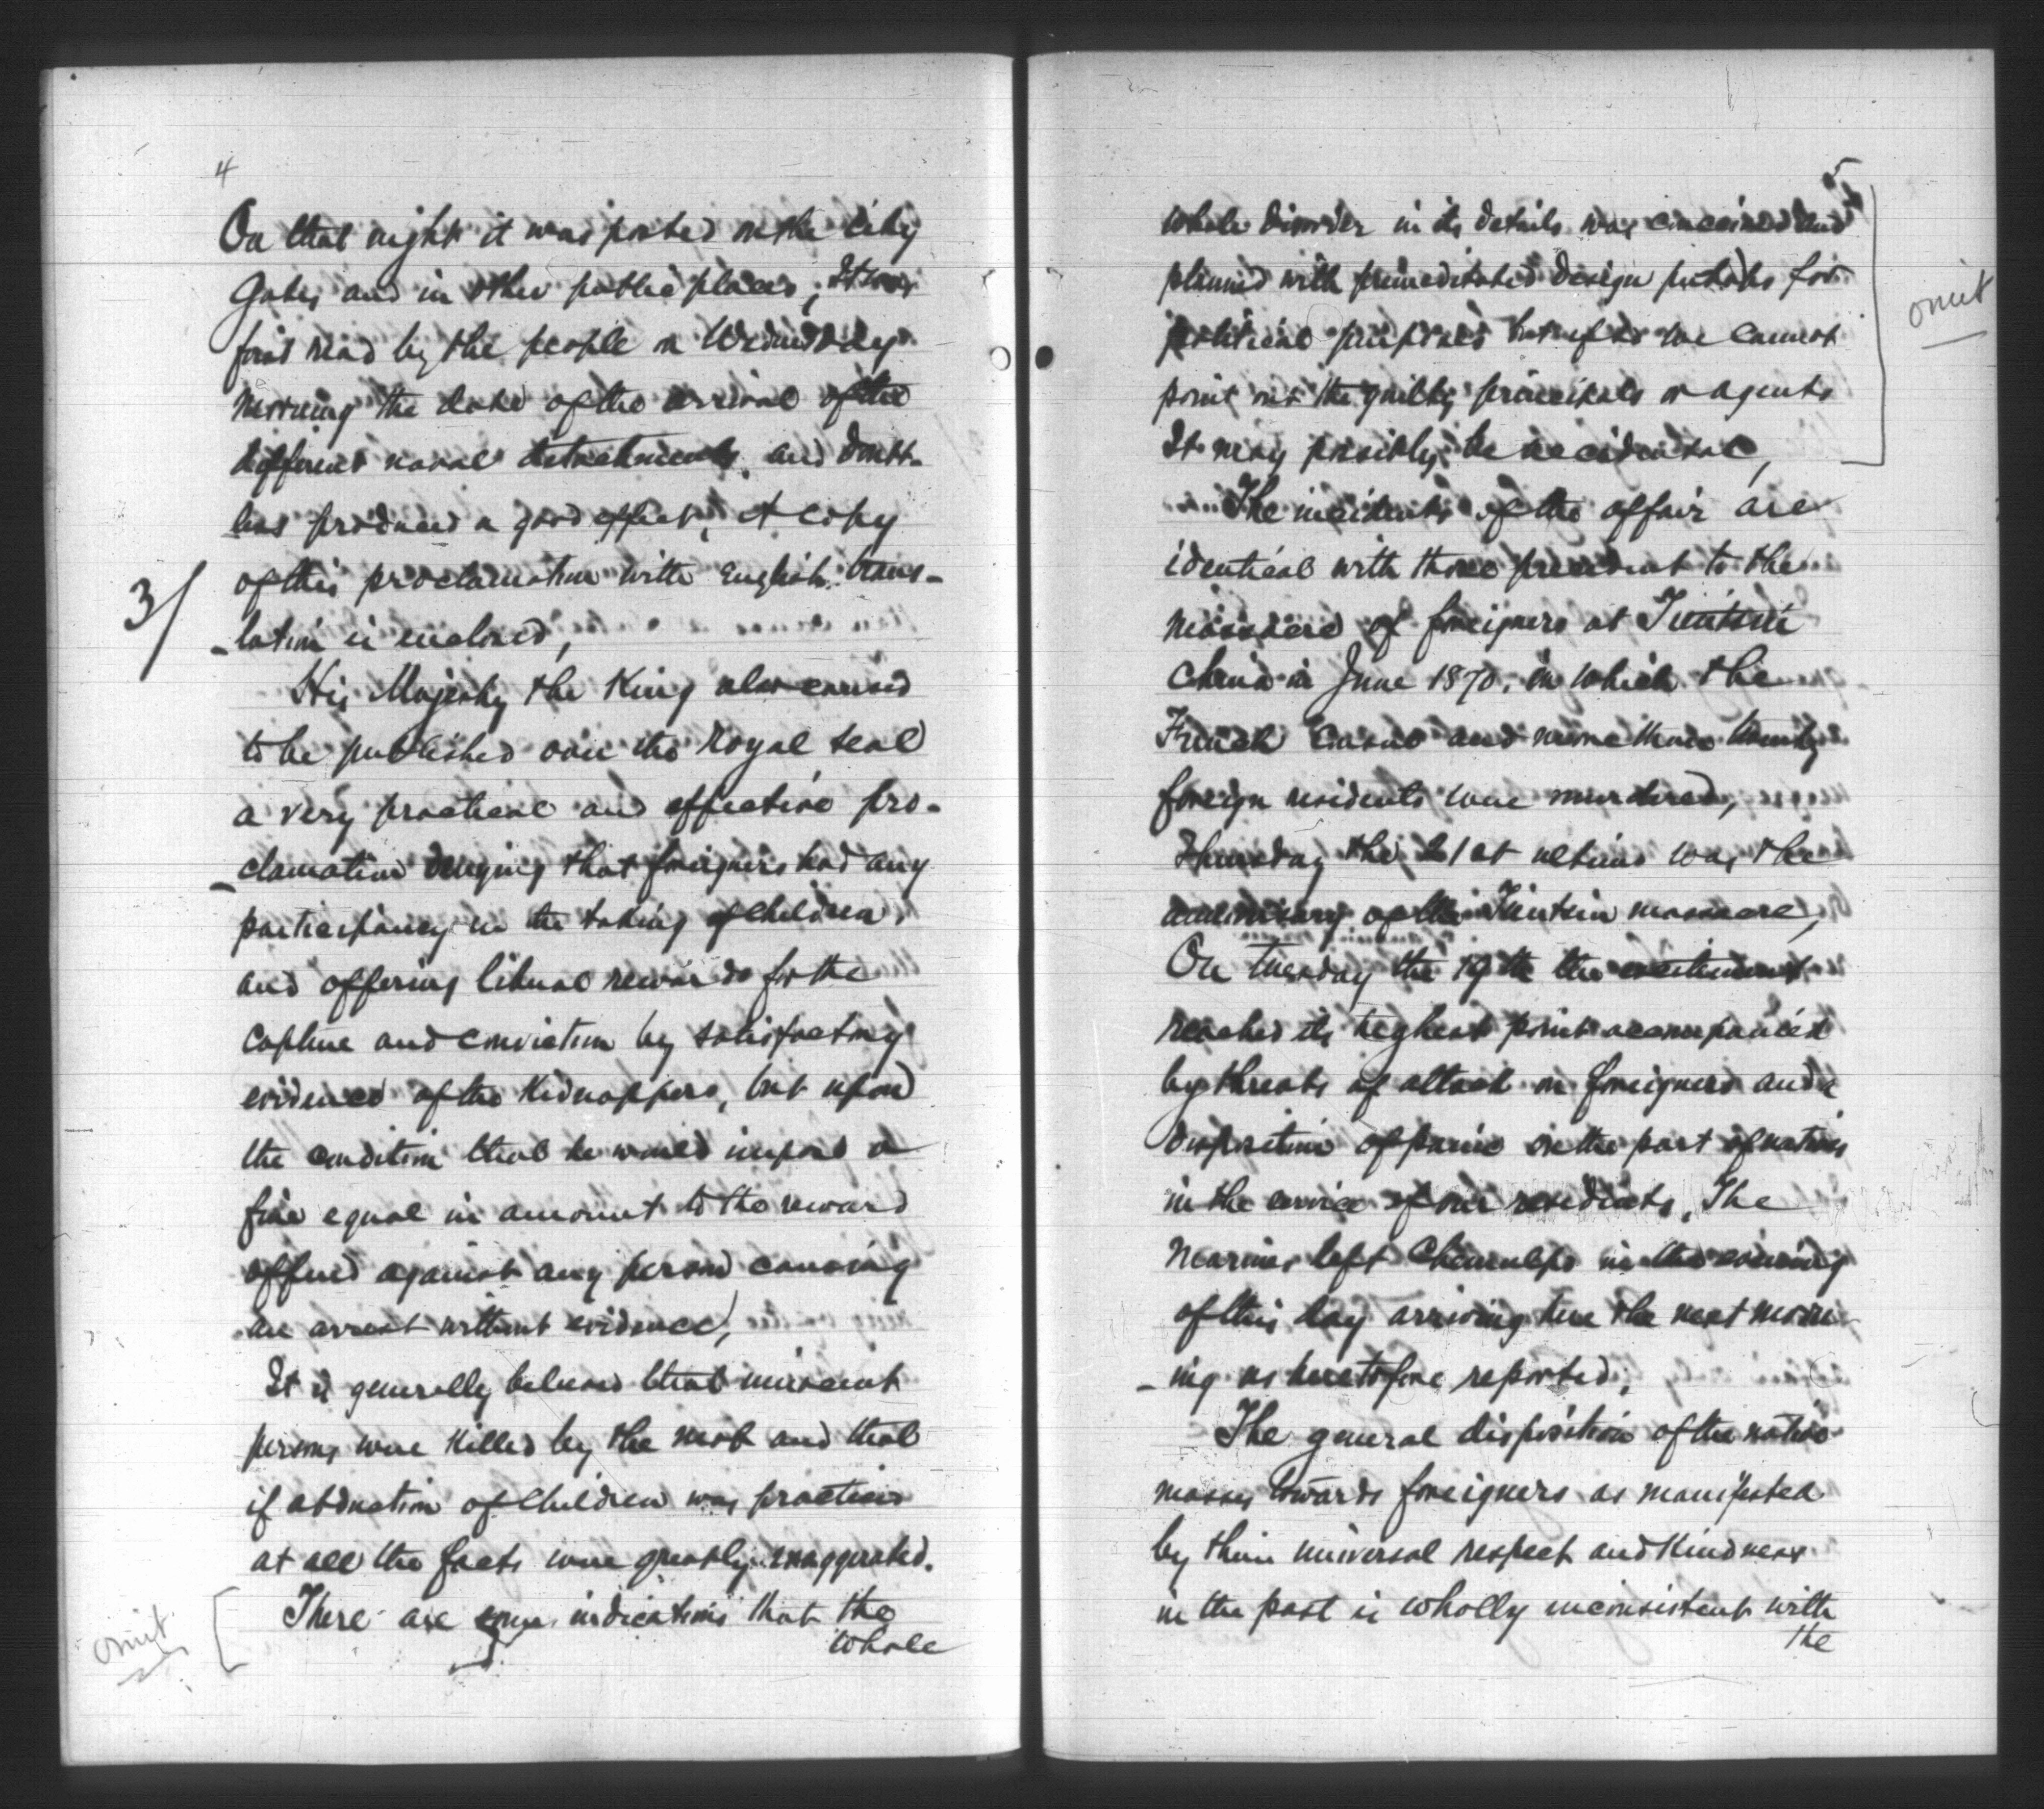 4
On that night it was posted on the city
Gates and in other public places, It was
first read by the people on Wednesday
morning the date of the arrival of the
different naval detachments, and doubt-
less produced a good effect, A copy
of this proclamation with English trans-
3/
-lation is enclosed,
His Majesty the King also caused
to be published over the royal seal
a very practical and effective pro-
-clamation denying that foreigners had any
participancy in the taking of children,
and offering liberal rewards for the
capture and conviction by satisfactory
evidence of the kidnappers, but upon
the condition that he would impose a
fine equal in amount to the reward
offered against any person causing
an arrest without evidence,
It is generally believed that innocent
persons were killed by the mob and that
if abduction of children was practiced
at all the facts were greatly exaggerated.
omit
There are some indications that the
whole
5
whole disorder in its details was conceived and
planned with premeditated design perhaps for
omit
political purposes but as we cannot
point out the guilty principals or agents
It may possibly be accidental,
The incidents of the affair are
identical with those precedent to the
massacre of foreigners at Tientsin
China in June 1870, in which the
French Consul and more than twenty
foreign residents were murdered,
Thursday the 21st ultimo was the
anniversary of the Tientsin massacre,
On Tuesday the 19th the excitement
reached its highest point accompanied
by threats of attack on foreigners and a
disposition of panic on the part of natives
in the service of our residents, The
marines left Chemulpo in the evening
of this day arriving here the next morn
-ing as heretofore reported.
The general disposition of the native
masses towards foreigners as manifested
by their universal respect and kindness
in the past is wholly inconsistent with
the